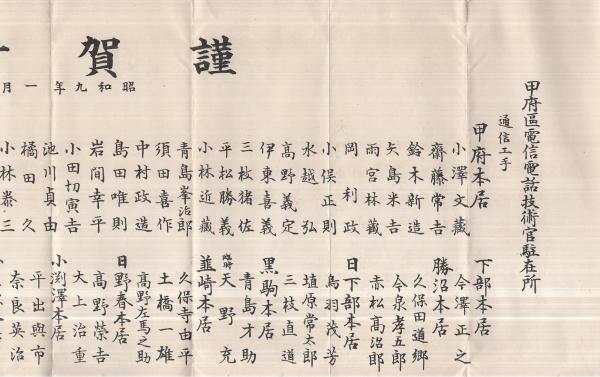 謹賀
昭和九年一月
甲府區電信電話技術官駐在所
通信工手
甲府本居
小澤文藏
齋藤常吉
鈴木新造
矢島米吉
雨宮林藏
岡利政
小俣正則
水越弘
高野義定
伊東喜義
三枝猪佐
平松勝義
小林近藏
青島峯治郎
須田喜作
中村政造
島田唯則
岩間幸平
小田切寅吉
池川貞由
橘田久
小林泰三
下部本居
今澤正之
勝沼本居
久保田道郷
今泉孝五郎
赤松髙治郎
日下部本居
鳥羽茂芳
埴原常太郎
三枝直道
黒駒本居
青島才助
臨時 天野充
韮崎本居
久保寺由平
土橋一雄
髙野左馬之助
日野春本居
髙野榮吉
大上治重
小淵澤本居
平出與市
奈良英治